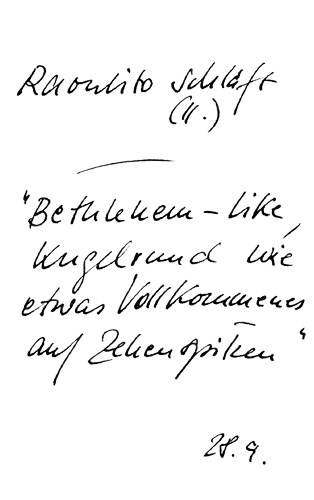 Raoulito schläft
(II.)
"Bethlehem-like,
kugelrund wie
etwas Vollkommenes
auf Zehenspitzen"
28.9.